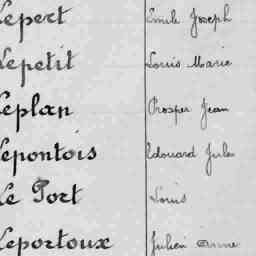 Lepert Emile Joseph
Lepetit Louis Marie
Leplan Prosper Jean
Lepontois Edouard Jules
Le Port Louis
Leportoux Julien Anne